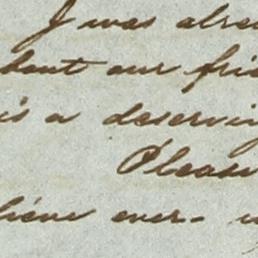 I was alre
bout our frie
is a deservin
Please
lieve ever-